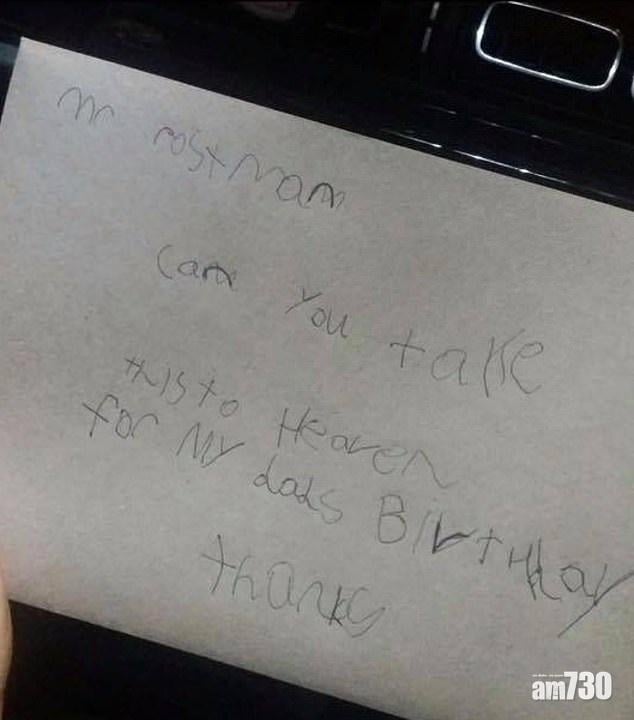 Mr Postman
Can you take
this to Heaven
for my dads BirtHday
thanks
am730